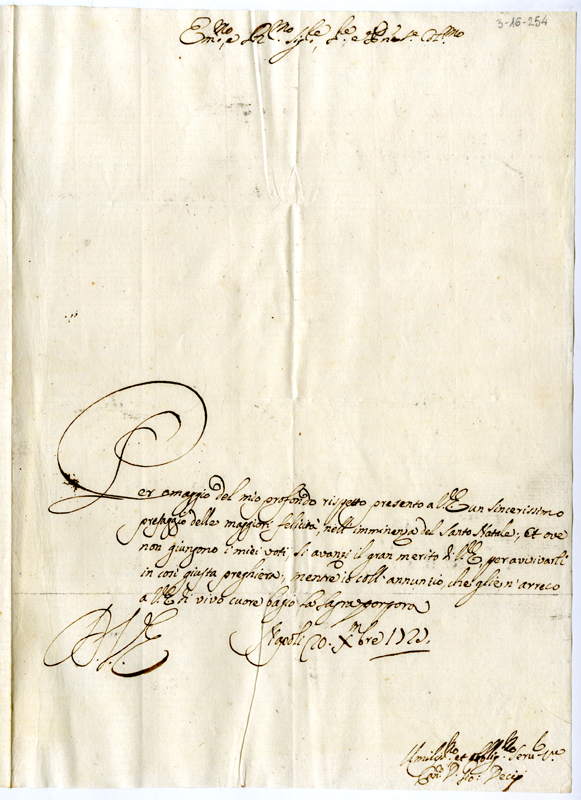 3-16-254
Em.no e R.mo Sig.re, Sig.re e P.ne
Per omaggio del mio profondo rispetto presento all'E.V. un sincerissimo
presaggio delle maggiori felicità, nell'imminenza del Santo Natale; Et ove
non giungono i miei voti si avanzi il gran merito di V.E. per avvivarli
in così giusta preghiera; mentre io coll'annunzio, che glie n'arreco
a V.E. di vivo cuore bagio la Sagra porpora
Napoli 20. Xmbre
D. V. E.
Umiliss.mo et obblig.mo Serv.